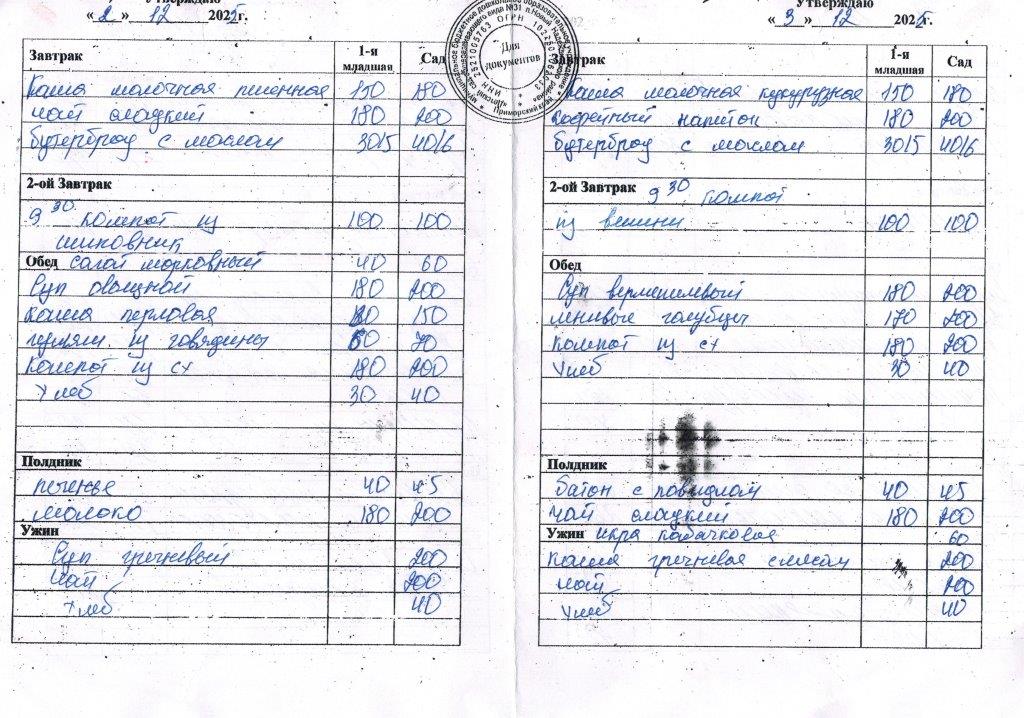 Утверждаю
« 2 » 12 2025г.
Завтрак 1-я младшая Сад
Каша молочная пшенная 150 180
чай сладкий 180 200
бутерброд с маслом 30/5 40/6
2-ой Завтрак
9 30 компот из 100 100
шиповник
Обед салат морковный 40 60
Суп овощной 180 200
каша перловая 150
гуляш из говядины 60 70
компот из сх 180 200
Хлеб 30 40
Полдник
печенье 40 45
молоко 180 200
Ужин
Суп гречневый 200
чай 200
Хлеб 40
Утверждаю
« 3 » 12 2025г.
Завтрак 1-я младшая Сад
каша молочная кукурузная 150 180
кофейный напиток 180 200
бутерброд с маслом 30/5 40/6
2-ой Завтрак 9 30 компот
из вешни 100 100
Обед
Суп вермешелевый 180 200
ленивые голубцы 170 200
компот из сх 180 200
Хлеб 30 40
Полдник
батон с повидлом 40 45
чай сладкий 180 200
Ужин икра кабачковая 60
каша гречневая с мясом 200
чай 200
Хлеб 40
Для
документов